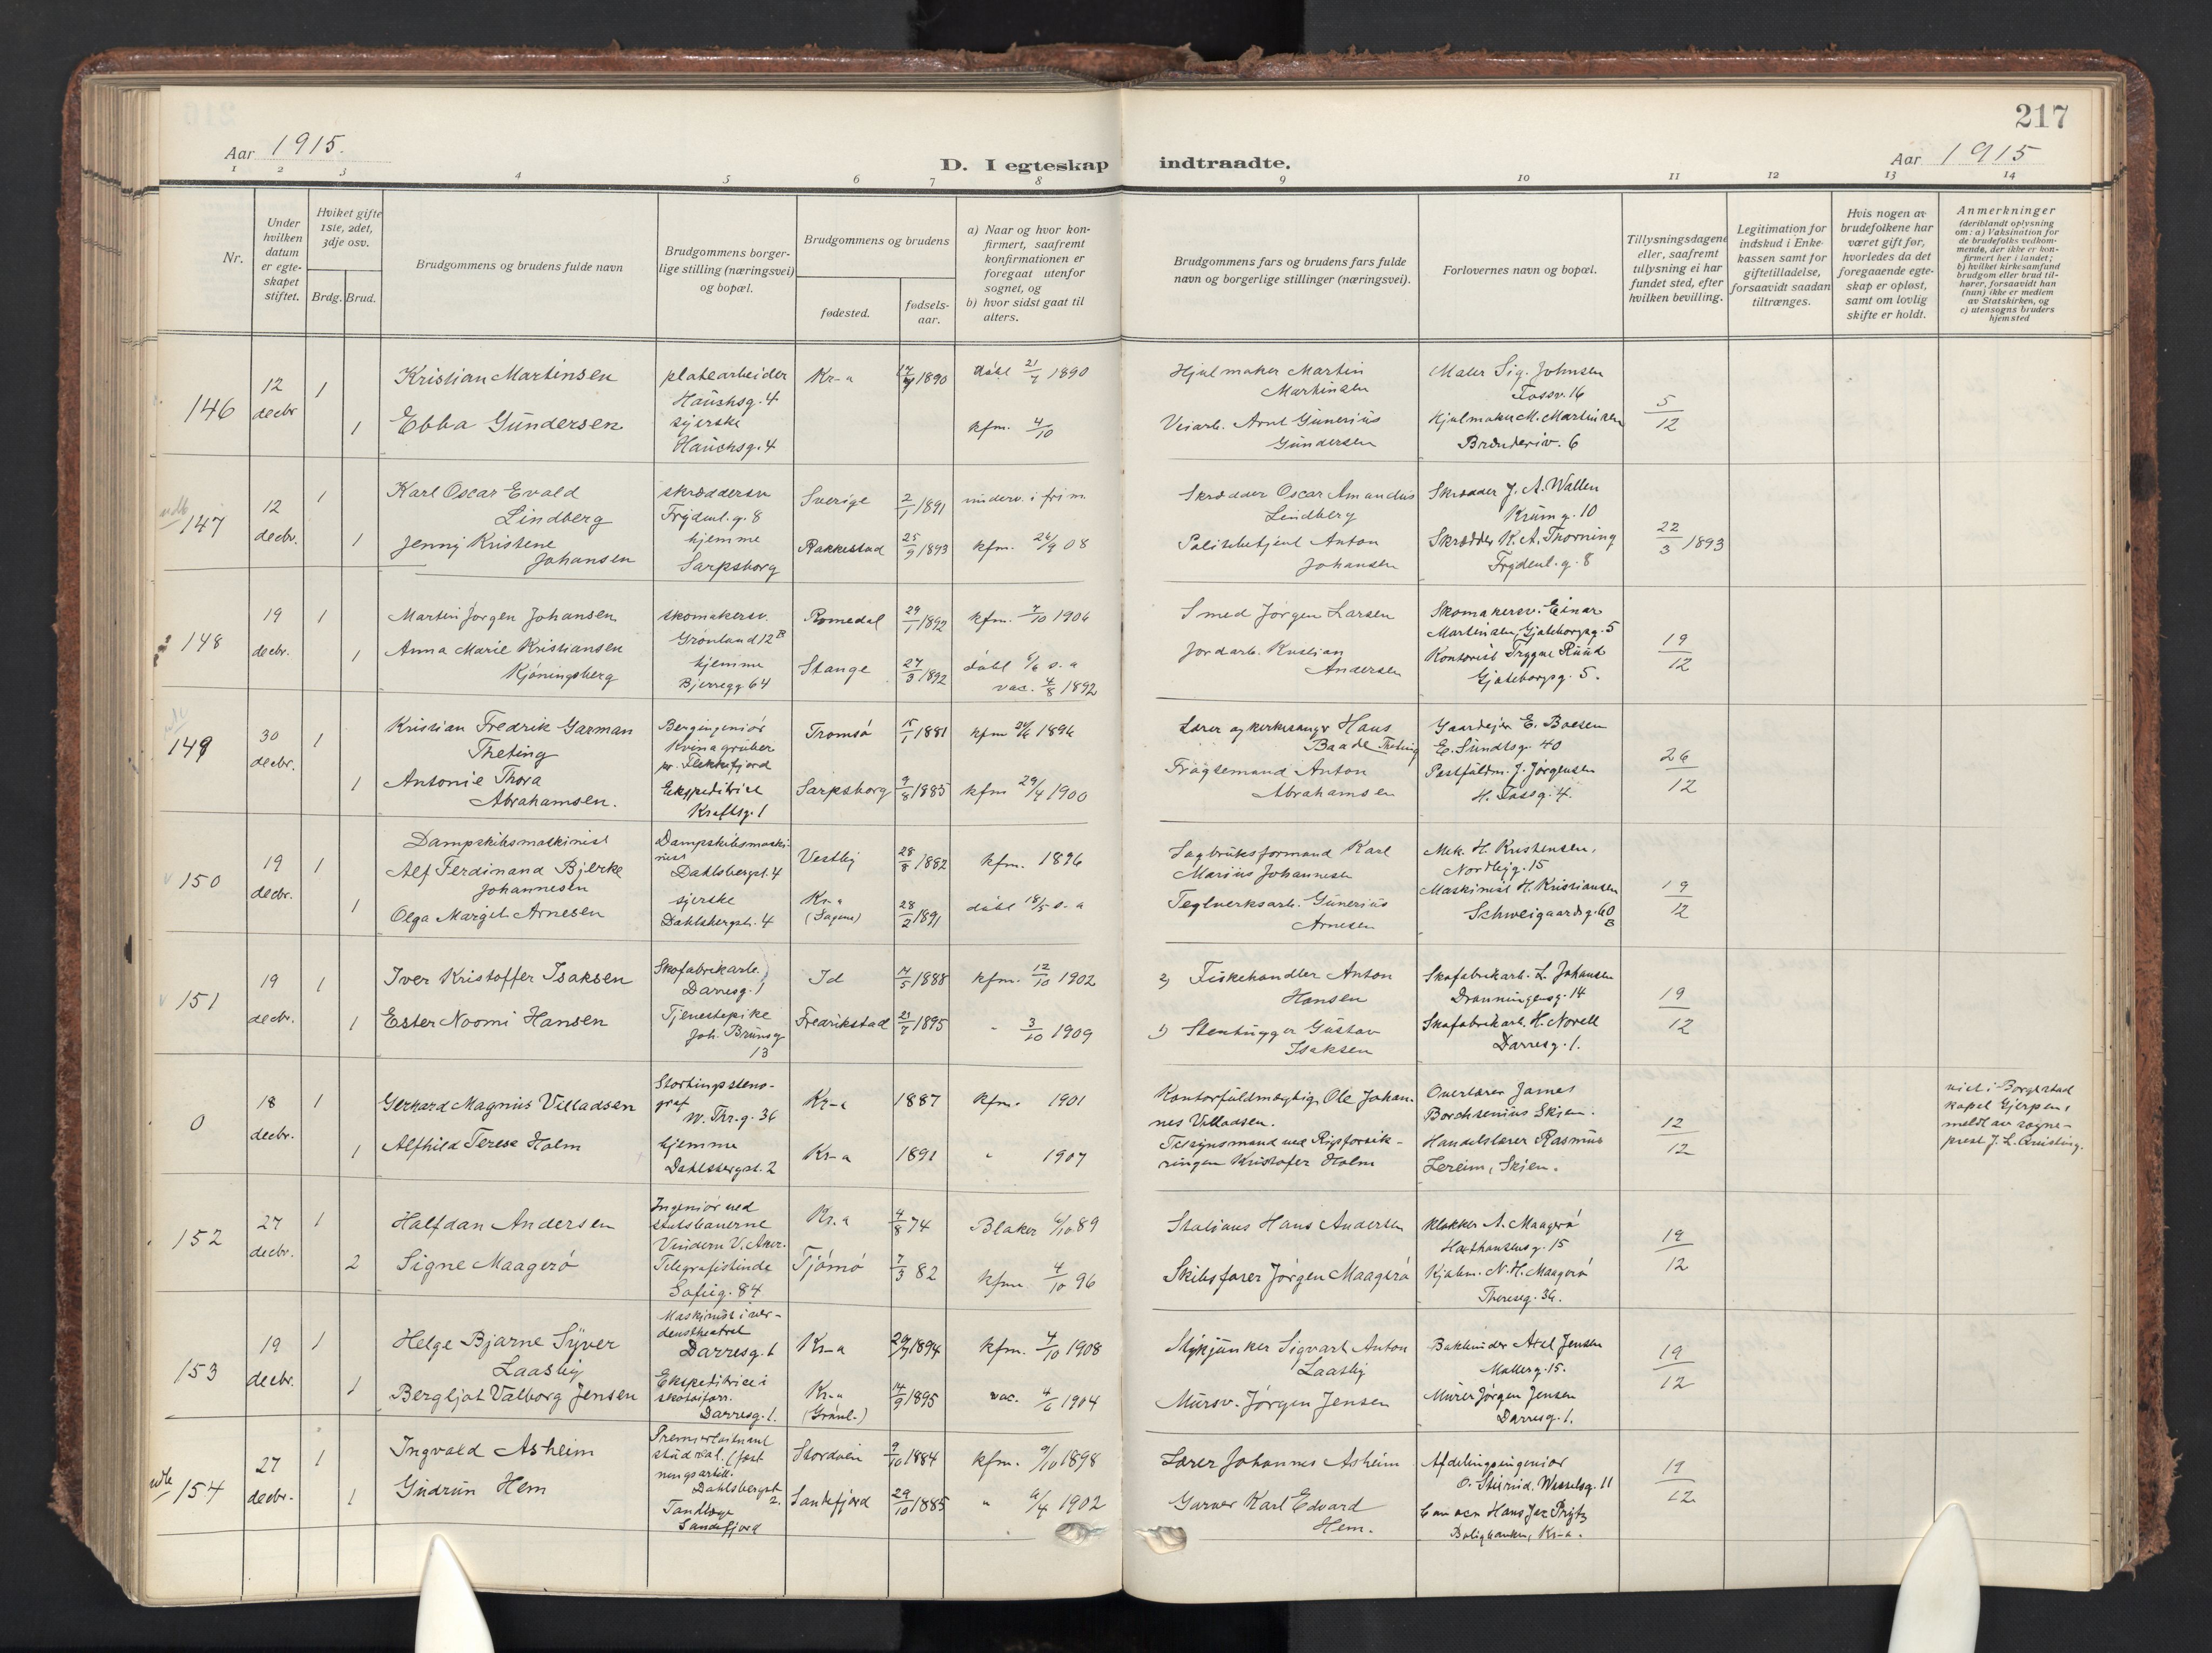 217
Aar 1915.
D. I egteskap indtraadte.
Aar 1915
1 2 3 4 5 6 7 8 9 10 11 12 13 14
Nr.
Under hvilken datum er egteskapet stiftet.
Hviket gifte 1ste, 2det, 3dje osv.
Brdg. Brud.
Brudgommens og brudens fulde navn
Brudgommens borgerlige stilling (næringsvei) og bopæl.
Brudgommens og brudens
fødested.
fødselsaar.
a) Naar og hvor konfirmert, saafremt konfirmationen er foregaat utenfor sognet, og
b) hvor sidst gaat til alters.
Brudgommens fars og brudens fars fulde navn og borgerlige stillinger (næringsvei).
Forlovernes navn og bopæl.
Tillysningsdagene eller, saafremt tillysning ei har fundet sted, efter hvilken bevilling.
Legitimation for indskud i Enkekassen samt for giftetilladelse, forsaavidt saadan tiltrænges.
Hvis nogen av brudefolkene har været gift før, hvorledes da det foregaaende egteskap er opløst, samt om lovlig skifte er holdt.
Anmerkninger
(deriblandt oplysning om: a) Vaksination for de brudefolks vedkommende, der ikke er konfirmert her i landet;
b) hvilket kirkesamfund brudgom eller brud tilhører, forsaavidt han (hun) ikke er medlem av Statskirken, og
c) utensogns bruders hjemsted
146
12 decbr
1
Kristian Martinsen
platearbeider
Hauchsg. 4
Kr-a
1890
døbt 21/7 1890
Hjulmaker Martin
Martinsen
Maler Sig. Johnsen
Fossv. 16
5/12
1
Ebba Gundersen
syerske
Hauchsg. 4
kfm. 4/10
Veiarb. Arnt Gunerius
Gundersen
Hjulmaker M. Martinsen
Brænderiv. 6
147
12 decbr.
1
Karl Oscar Evald
Lindberg
skræddersv
Frydenl. g. 8
Sverige
2/1 1891
underv. i frim.
Skrædder Oscar Amandus
Lindberg
Skrædder J. A. Wallen
Krumg. 10
22/3 1893
1
Jenny Kristene
Johansen
hjemme
Sarpsborg
Rakkestad
25/9 1893
kfm. 26/9 08
Politibetjent Anton
Johansen
Skrædder K. A. Thorning
Frydenl. g. 8
148
19 decbr.
1
Martin Jørgen Johansen
skomakersv.
Grønland 12 B
Romedal
29/1 1892
kfm. 7/10 1906
Smed Jørgen Larsen
Skomakersv. Einar
Martinsen, Gjøteborgsg. 5
19/12
1
Anna Marie Kristiansen
Kjøningsberg
hjemme
Bjerregg 64
Stange
27/3 1892
døbt 6/6 s. a
vac. 4/8 1892
Jordarb. Kristian
Andersen
Kontorist Trygve Ruud
Gjøteborgsg. 5.
149
30 decbr.
1
Kristian Fredrik Garman
Theting
Bergingeniør
Kvinagruber
pr. Flekkefjord
Tromsø
15/1 1881
kfm 24/6 1896
Lærer og kirkesanger Hans
Baade Theting
Gaardejer E. Boesen
E. Sundtsg. 40
26/12
1
Antonie Thora
Abrahamsen.
Ekspeditrice
Kraftsg. 1
Sarpsborg
9/8 1885
kfm 29/4 1900
Fragtemand Anton
Abrahamsen
Postfuldm. J. Jørgensen
H. Fossg. 4.
150
19 decbr.
1
Dampskibsmaskinist
Alf Ferdinand Bjerke
Johannesen
Dampskibsmaskinist
Dahlsbergst. 4
Vestby
28/8 1882
kfm. 1896
Sagbruksformand Karl
Marius Johannesen
Mek. H. Kristensen,
Nordbyg. 15
19/12
1
Olga Margit Arnesen
syerske
Dahlsbergst. 4
Kr-a
(Sagene)
28/2 1891
døbt 18/5 s. a
Teglverksarb. Gunerius
Arnesen
Maskinist H. Kristiansen
Schweigaardsg. 60
B
151
19 decbr.
1
Iver Kristoffer Isaksen
Skofabrikarb.
Darresg. 1
Id
7/5 1888
kfm. 12/10 1902
2) Fiskehandler Anton
Hansen
Skofabrikarb. L. Johansen
Dronningensg. 14
19/12
1
Ester Noomi Hansen
Tjenestepike
Joh. Brunsg
13
Fredrikstad
21/7 1895
" 3/10 1909
1) Stenhugger Gustav
Isaksen
Skofabrikarb. H. Norell
Darresg. 1.
0
18 decbr.
1
Gerhard Magnus Villadsen
Stortingsstenograf
W. Thr. g. 36
Kr-a
1887
kfm. 1901
Kontorfuldmægtig Ole Johannes Villadsen.
Overlærer James
Borchsenius Skien.
12/12
viet i Borgestad
kapel Gjerpen,
meldt av sogneprest J. L. Quisling.
1
Alfhild Terese Holm
hjemme
Dahlsbergst. 2
Kr-a
1891
" 1907
Tilsynsmand ved Rigsforsikringen Kristofer Holm
Handelslærer Rasmus
Lereim, Skien.
152
27 decbr.
1
Halfdan Andersen
Ingeniør ved
statsbanerne
Vindern V. Aker.
Kr. a
4/8 74
Blaker 6/10 89
Stations Hans Andersen
Klokker A. Maagerø
Holthausensg. 15
19/12
2
Signe Maagerø
Telegrafistinde
Sofieg. 84
Tjømø
7/3 82
kfm 4/10 96
Skibsfører Jørgen Maagerø
Kjøbm. N. H. Maagerø
Theresesg. 36.
153
19 decbr.
1
Helge Bjarne Syver
Laasby
Maskinist i verdenstheatret
Darresg. 1
Kr-a
1894
kfm. 4/10 1908
Stykjunker Sigvart Anton
Laasby
Bokbinder Axel Jensen
Møllerg. 15.
19/12
1
Bergljot Valborg Jensen
Ekspeditrice i
skotøiforr.
Darresg. 1.
Kr-a
(Grønl.)
14/9 1895
vac. 4/6 1904
Mursv. Jørgen Jensen
Murer Jørgen Jensen
Darresg. 1.
154
27 decbr.
1
Ingvald Asheim
Premierløitnant
stud real. (fæstningsartill.
Dahlsbergst
2.
Stordøen
9/10 1884
kfm. 9/10 1898
Lærer Johannes Asheim
Afdelingsingeniør
O. Stixrud. Wesselsg. 11
19/12
1
Gudrun Hem
Tandlæge
Sandefjord
Sandefjord
29/10 1885
" 6/4 1902
Garver Karl Edvard
Hem.
Hans Jac Prytz
Boligbanken, Kr-a.